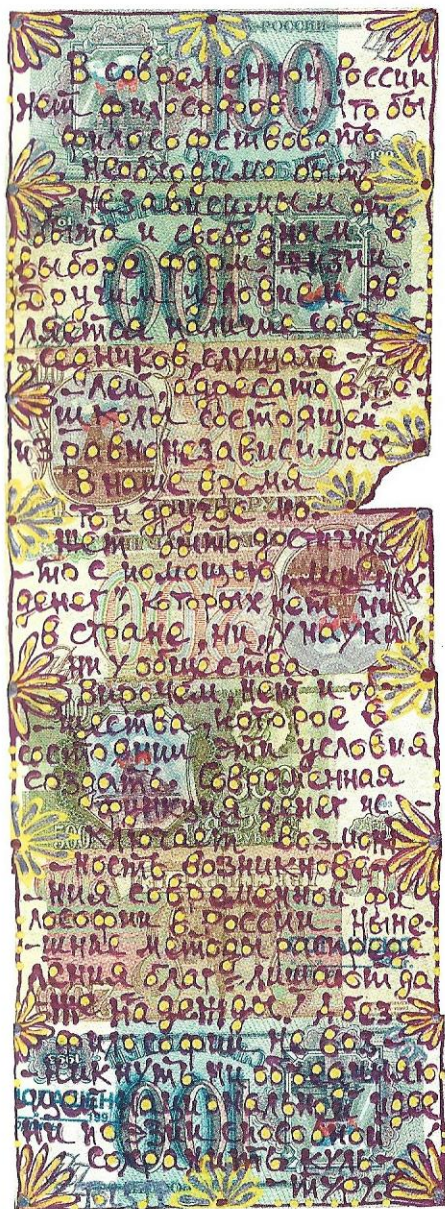 В современной России
нет философов... Что бы
философствовать
необходимо быть
независимым от
быта и свободным в
выборе форм жизни
Другим условием яв-
ляется наличие собе-
-седников, слушате-
лей, адресатов, т.е
школы состоящей
из равнонезависимых
В наше время
то и другое мо-
жет быть достигну-
-то с помощью „лишних
денег", которых нет ни
в стране, ни „у науки"
ни у общества
Впрочем, нет и об-
-щества, которое в
состоянии эти условия
создать. Современная
функция денег ис-
ключает возмож-
ность возникнове-
ния современной фи
лософии в России. Ныне-
-шние методы распреде
ления благ - лишают да
же надежды. А без
философии не воз-
-никнуть ни
ни поэзии способной
сохранить куль-
-туру.